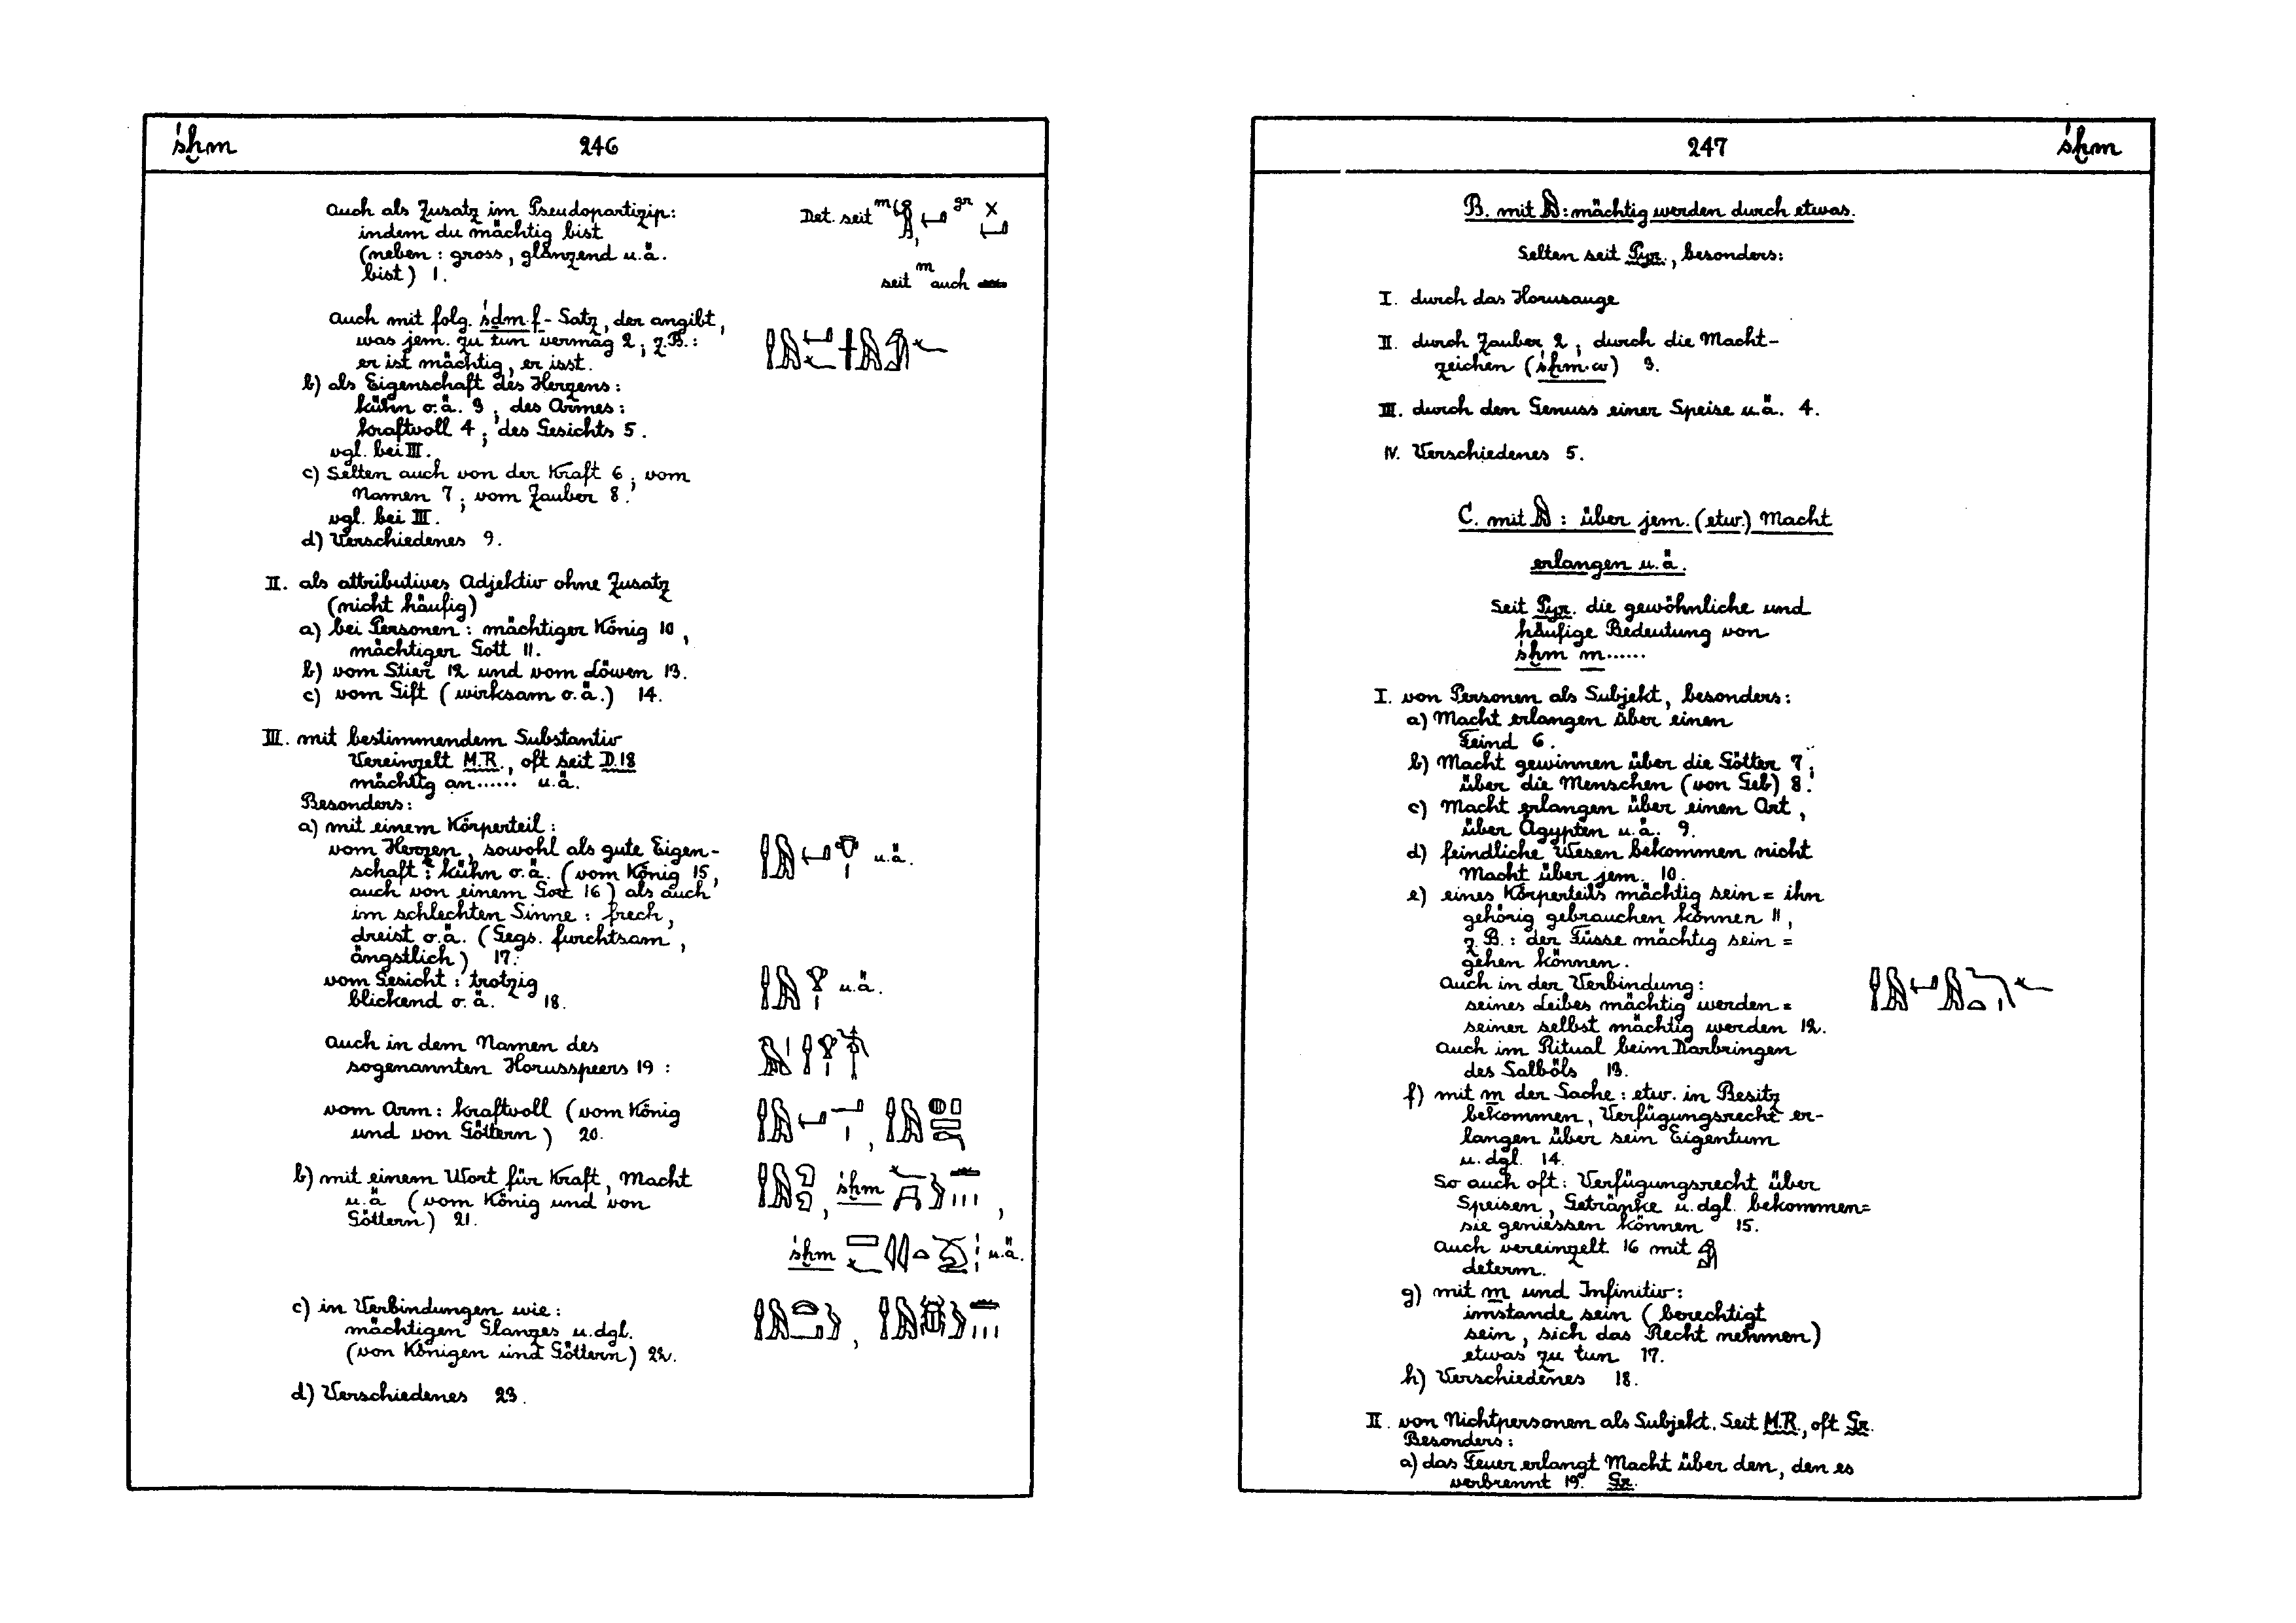 śḫm 246
Auch als Zusatz im Pseudopartizip:
indem du mächtig bist
(neben: gross, glänzend u.ä.
bist) 1.
Auch mit folg. śḏm.f-Satz, der angibt,
was jem. zu tun vermag 2; z.B.:
er ist mächtig, er isst.
b) als Eigenschaft des Herzens:
kühn o.ä. 3; des Armes:
kraftvoll 4; des Gesichts 5.
vgl. bei III.
c) Selten auch von der Kraft 6; vom
Namen 7; vom Zauber 8.
vgl. bei III.
d) Verschiedenes 9.
II. als attributives Adjektiv ohne Zusatz
(nicht häufig)
a) bei Personen: mächtiger König 10,
mächtiger Gott 11.
b) vom Stier 12 und vom Löwen 13.
c) vom Gift (wirksam o.ä.) 14.
III. mit bestimmendem Substantiv
Vereinzelt M.R., oft seit D.18
mächtig an...... u.ä.
Besonders:
a) mit einem Körperteil:
vom Herzen, sowohl als gute Eigen-
schaft: kühn o.ä. (vom König 15,
auch von einem Gott 16) als auch
im schlechten Sinne: frech,
dreist o.ä. (Gegs. furchtsam,
ängstlich) 17.
vom Gesicht: trotzig
blickend o.ä. 18.
Auch in dem Namen des
sogenannten Horusspeers 19:
vom Arm: kraftvoll (vom König
und von Göttern) 20.
b) mit einem Wort für Kraft, Macht
u.ä (vom König und von
Göttern) 21.
c) in Verbindungen wie:
mächtigen Glanzes u.dgl.
(von Königen und Göttern) 22.
d) Verschiedenes 23.
Det. seit m gr
seit m auch
u.ä.
u.ä.
śḫm
śḫm u.ä.
247 śḫm
B. mit 𓅓: mächtig werden durch etwas.
Selten seit Pyr., besonders:
I. durch das Horusauge
II. durch Zauber 2; durch die Macht-
zeichen (śḫm.w) 3.
III. durch den Genuss einer Speise u.ä. 4.
IV. Verschiedenes 5.
C. mit 𓅓: über jem. (etw.) Macht
erlangen u.ä.
Seit Pyr. die gewöhnliche und
häufige Bedeutung von
śḫm m......
I. von Personen als Subjekt, besonders:
a) Macht erlangen über einen
Feind 6.
b) Macht gewinnen über die Götter 7;
über die Menschen (von Geb) 8.
c) Macht erlangen über einen Ort,
über Ägypten u.ä. 9.
d) feindliche Wesen bekommen nicht
Macht über jem. 10.
e) eines Körperteils mächtig sein = ihn
gehörig gebrauchen können 11,
z.B.: der Füsse mächtig sein =
gehen können.
Auch in der Verbindung:
seines Leibes mächtig werden =
seiner selbst mächtig werden 12.
Auch im Ritual beim Darbringen
des Salböls 13.
f) mit m der Sache: etw. in Besitz
bekommen, Verfügungsrecht er-
langen über sein Eigentum
u.dgl. 14.
So auch oft: Verfügungsrecht über
Speisen, Getränke u.dgl. bekommen =
sie geniessen können 15.
Auch vereinzelt 16 mit
determ.
g) mit m und Infinitiv:
imstande sein (berechtigt
sein, sich das Recht nehmen)
etwas zu tun 17.
h) Verschiedenes 18.
II. von Nichtpersonen als Subjekt. Seit M.R., oft Gr.
Besonders:
a) das Feuer erlangt Macht über den, den es
verbrennt 19. Gr.